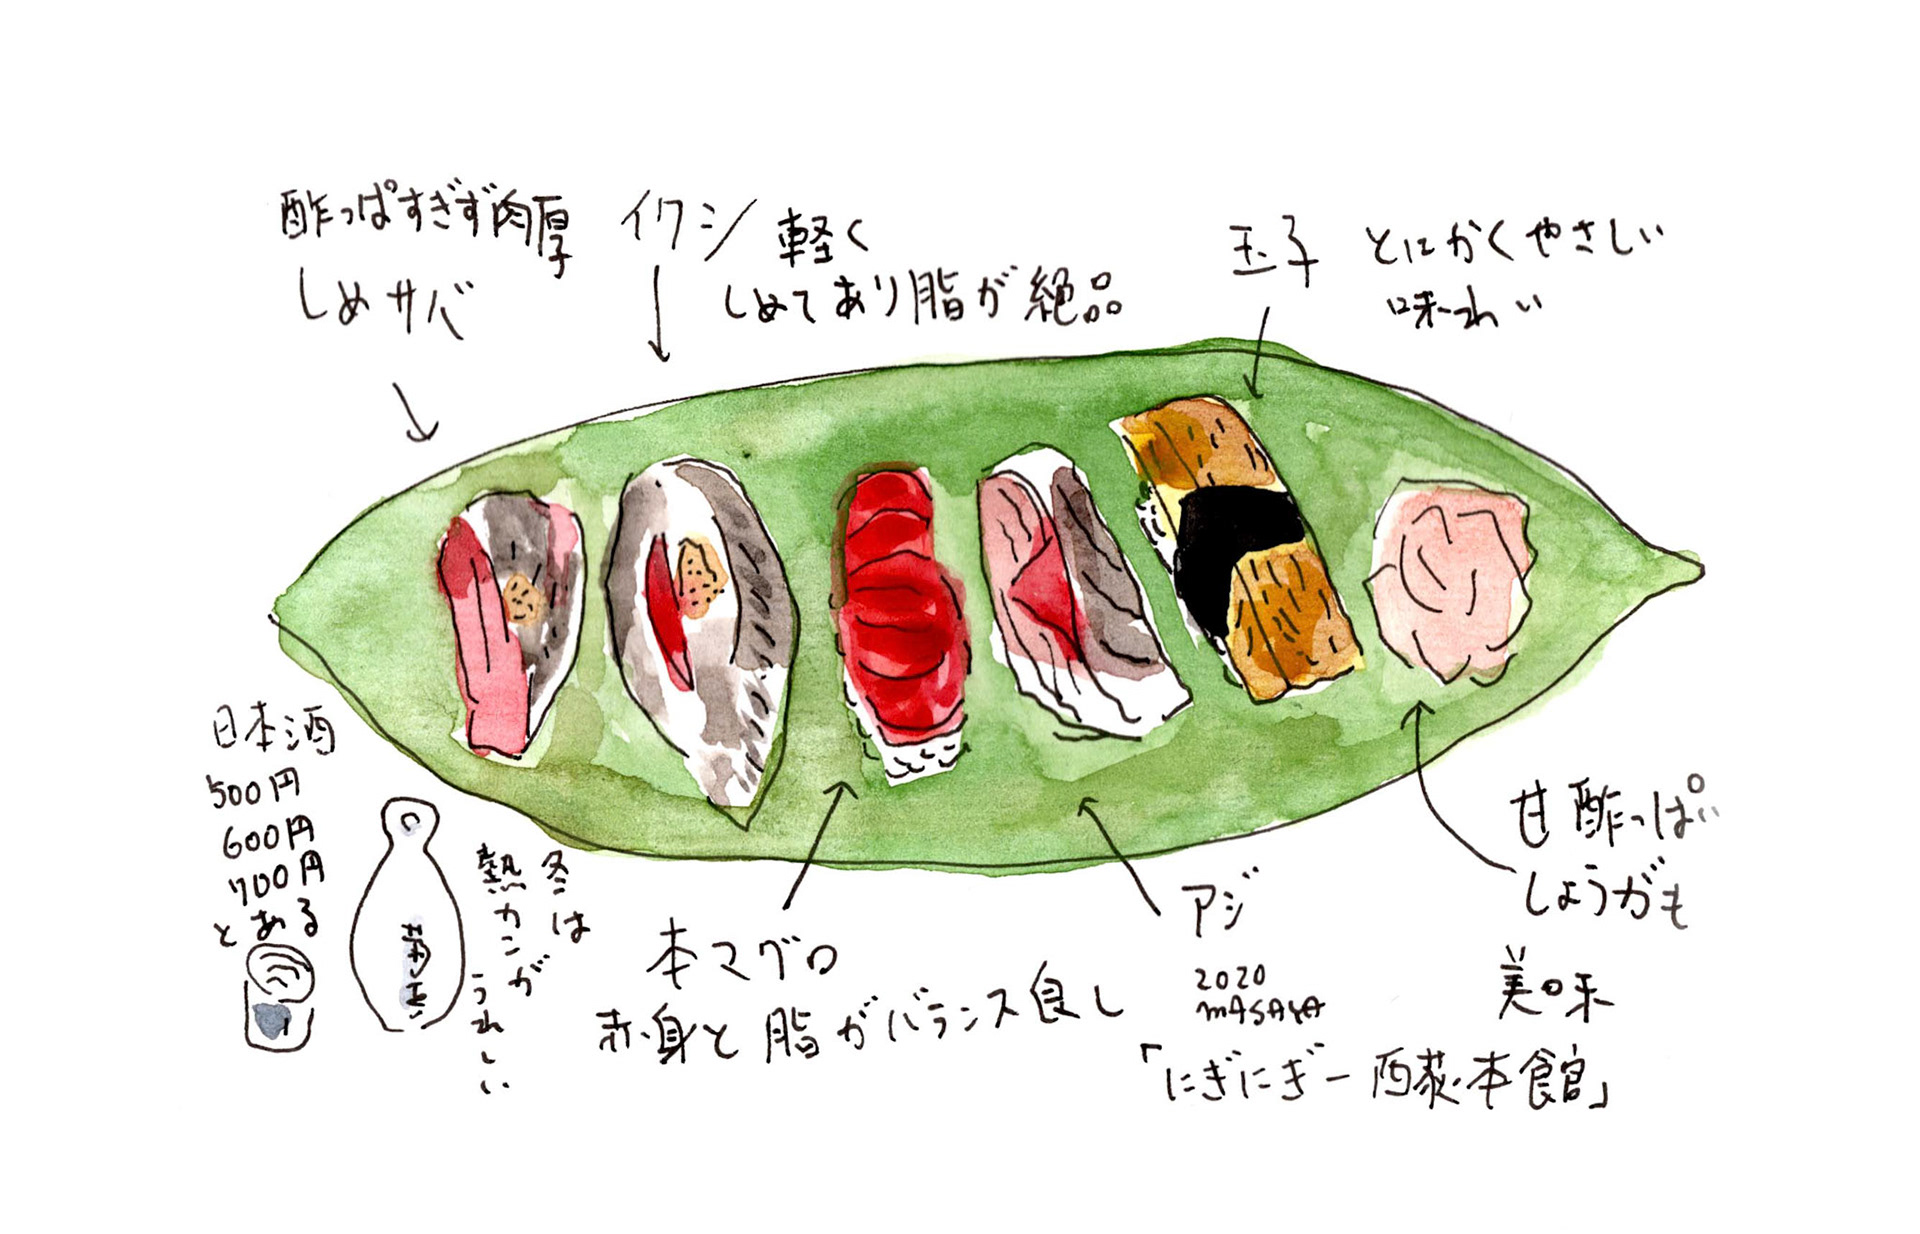 酢っぱすぎず肉厚
しめサバ
イワシ 軽く
しめてあり脂が絶品
玉子 とにかくやさしい
味わい
日本酒
500円
600円
700円
とある
冬は
熱カンが
うれしい
本マグロ
赤身と脂がバランス良し
アジ
2020
MASAYA
甘酢っぱい
しょうがも
美味
「にぎにぎー西荻・本館」